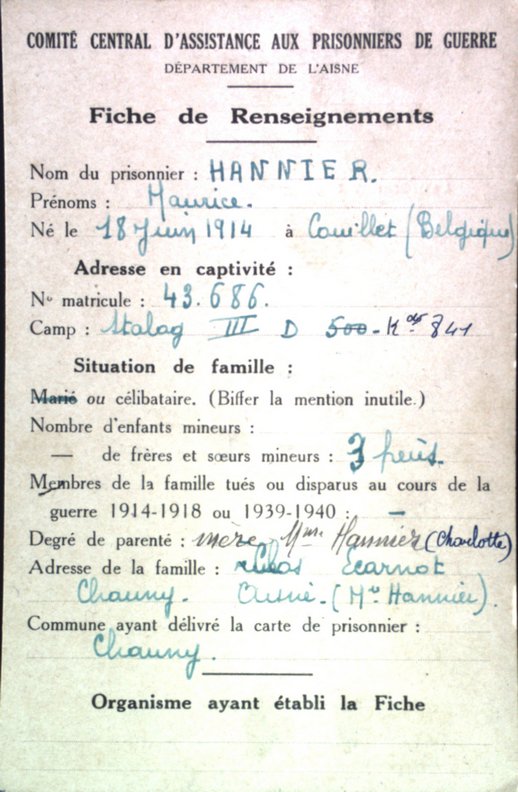 COMITÉ CENTRAL D'ASSISTANCE AUX PRISONNIERS DE GUERRE
DÉPARTEMENT DE L'AISNE
Fiche de Renseignements
Nom du prisonnier : HANNIER.
Prénoms : Maurice.
Né le 18 Juin 1914 à Couillet (Belgique)
Adresse en captivité :
No matricule : 43.686.
Camp : Stalag III D 500 - Kdo 841
Situation de famille :
Marié ou célibataire. (Biffer la mention inutile.)
Nombre d'enfants mineurs :
— de frères et sœurs mineurs : 3 frères.
Membres de la famille tués ou disparus au cours de la
guerre 1914-1918 ou 1939-1940 : —
Degré de parenté : mère Mme Hannier (Charlotte)
Adresse de la famille : Ecarnot
Chauny. Aisne. (Me Hannier).
Commune ayant délivré la carte de prisonnier :
Chauny.
Organisme ayant établi la Fiche